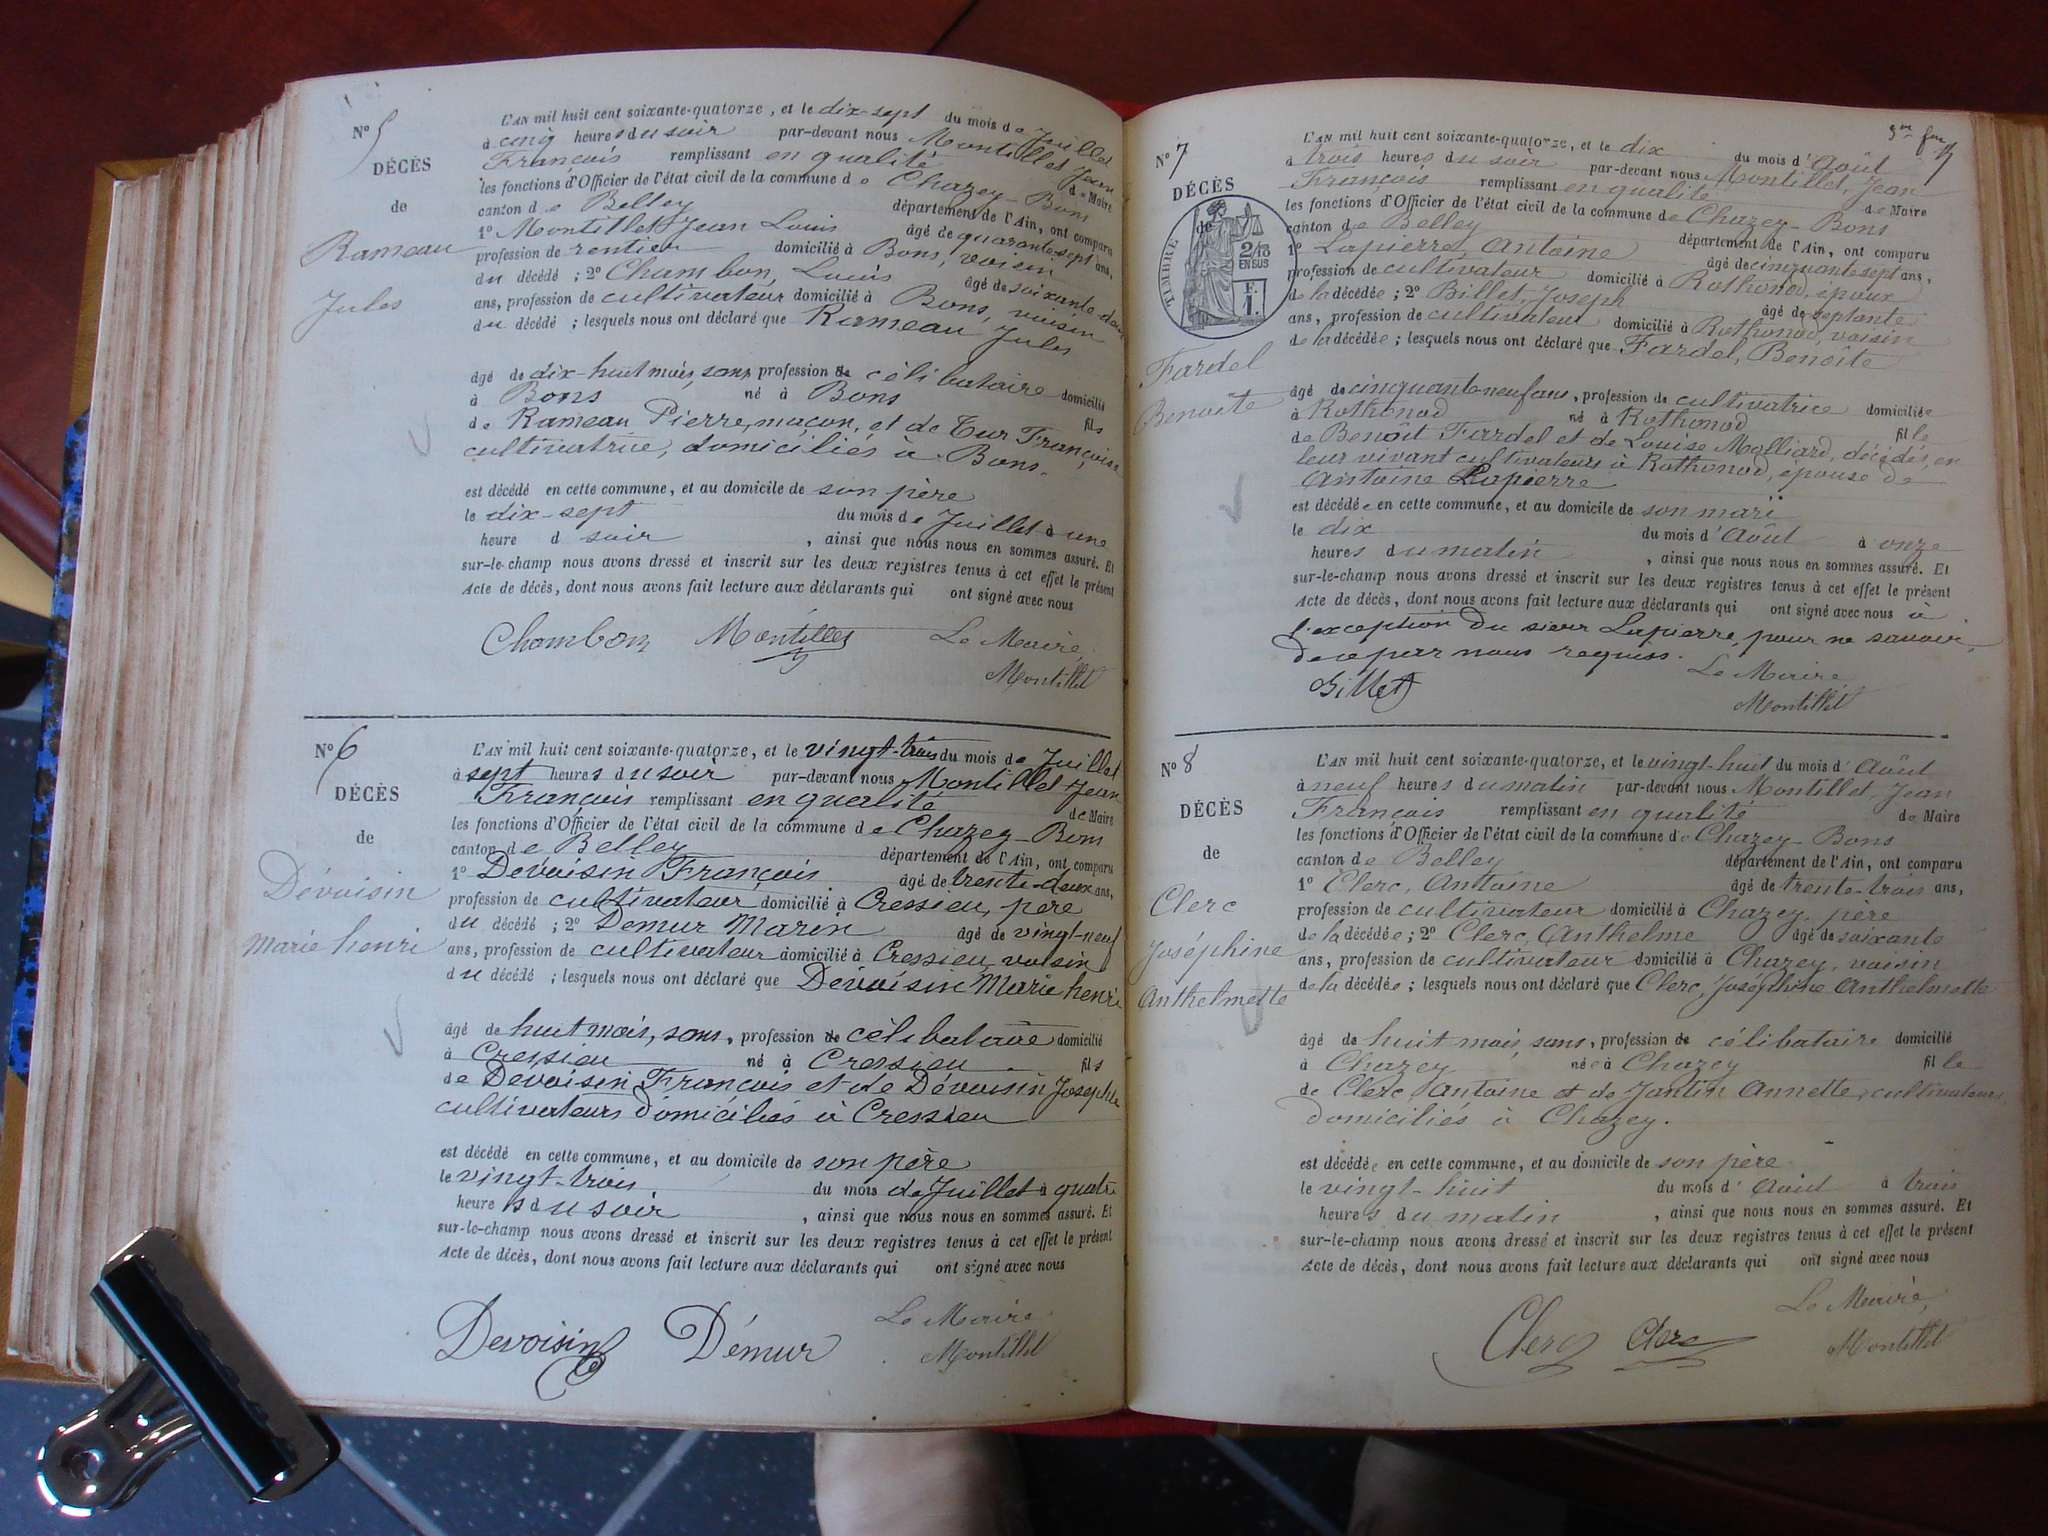 N° 5
DÉCÈS
de
Rameau
Jules
L'AN mil huit cent soixante-quatorze, et le dix-sept du mois de Juillet
à cinq heures du soir par-devant nous Montillet Jean
François remplissant en qualité de Maire
les fonctions d'Officier de l'état civil de la commune de Chazey-Bons
canton de Belley département de l'Ain, ont comparu
1° Montillet Jean Louis âgé de quarante sept ans,
profession de rentier domicilié à Bons, voisin
du décédé ; 2° Chambon, Louis âgé de soixante deux
ans, profession de cultivateur domicilié à Bons, voisin
du décédé ; lesquels nous ont déclaré que Rameau Jules
âgé de dix-huit mois, sans profession de célibataire domicilié
à Bons né à Bons fils
de Rameau Pierre, maçon, et de Tur Françoise
cultivatrice, domiciliés à Bons.
est décédé en cette commune, et au domicile de son père
le dix-sept du mois de Juillet à une
heure d soir , ainsi que nous nous en sommes assuré. Et
sur-le-champ nous avons dressé et inscrit sur les deux registres tenus à cet effet le présent
Acte de décès, dont nous avons fait lecture aux déclarants qui ont signé avec nous
Chambon Montillet Le Maire,
Montillet
N° 6
DÉCÈS
de
Dévoisin
Marie henri
L'AN mil huit cent soixante-quatorze, et le vingt-trois du mois de Juillet
à sept heures du soir par-devant nous Montillet Jean
François remplissant en qualité de Maire
les fonctions d'Officier de l'état civil de la commune de Chazey-Bons
canton de Belley département de l'Ain, ont comparu
1° Dévoisin François âgé de trente-deux ans,
profession de cultivateur domicilié à Cressieu, père
du décédé ; 2° Demur Marin âgé de vingt-neuf
ans, profession de cultivateur domicilié à Cressieu, voisin
du décédé ; lesquels nous ont déclaré que Dévoisin Marie henri
âgé de huit mois, sans, profession de célibataire domicilié
à Cressieu né à Cressieu fils
de Dévoisin François et de Dévoisin Josephte
cultivateurs domiciliés à Cressieu
est décédé en cette commune, et au domicile de son père
le vingt-trois du mois de Juillet à quatre
heures du soir , ainsi que nous nous en sommes assuré. Et
sur-le-champ nous avons dressé et inscrit sur les deux registres tenus à cet effet le présent
Acte de décès, dont nous avons fait lecture aux déclarants qui ont signé avec nous
Devoisin Démur Le Maire
Montillet
N° 7
DÉCÈS
de
TIMBRE
2/10
EN SUS
F.
1.
Fardel
Benoîte
L'AN mil huit cent soixante-quatorze, et le dix du mois d'Août
à trois heures du soir par-devant nous Montillet, Jean
François remplissant en qualité de Maire
les fonctions d'Officier de l'état civil de la commune de Chazey-Bons
canton de Belley département de l'Ain, ont comparu
1° Lapierre, Antoine âgé de cinquante sept ans,
profession de cultivateur domicilié à Rothonod, époux
de la décédée ; 2° Billet, Joseph âgé de septante
ans, profession de cultivateur domicilié à Rothonod, voisin
de la décédée ; lesquels nous ont déclaré que Fardel, Benoîte
âgé de cinquante neuf ans, profession de cultivatrice domiciliée
à Rothonod né à Rothonod fille
de Benoît Fardel et de Louise Molliard, décédés, en
leur vivant cultivateurs à Rothonod, épouse de
Antoine Lapierre
est décédée en cette commune, et au domicile de son mari
le dix du mois d'Août à onze
heures du matin , ainsi que nous nous en sommes assuré. Et
sur-le-champ nous avons dressé et inscrit sur les deux registres tenus à cet effet le présent
Acte de décès, dont nous avons fait lecture aux déclarants qui ont signé avec nous à
l'exception du sieur Lapierre, pour ne savoir,
de ce par nous requis.
Billet Le Maire
Montillet
N° 8
DÉCÈS
de
Clerc
Joséphine
Anthelmette
L'AN mil huit cent soixante-quatorze, et le vingt-huit du mois d'Août
à neuf heures du matin par-devant nous Montillet, Jean
François remplissant en qualité de Maire
les fonctions d'Officier de l'état civil de la commune de Chazey-Bons
canton de Belley département de l'Ain, ont comparu
1° Clerc, Antoine âgé de trente-trois ans,
profession de cultivateur domicilié à Chazey, père
de la décédée ; 2° Clerc, Anthelme âgé de soixante
ans, profession de cultivateur domicilié à Chazey, voisin
de la décédée ; lesquels nous ont déclaré que Clerc, Joséphine Anthelmette
âgé de huit mois, sans, profession de célibataire domicilié
à Chazey née à Chazey fille
de Clerc, Antoine et de Jantin Annette, cultivateurs,
domiciliés à Chazey.
est décédée en cette commune, et au domicile de son père
le vingt-huit du mois d'Août à trois
heures du matin , ainsi que nous nous en sommes assuré. Et
sur-le-champ nous avons dressé et inscrit sur les deux registres tenus à cet effet le présent
Acte de décès, dont nous avons fait lecture aux déclarants qui ont signé avec nous
Clerc Clerc Le Maire,
Montillet